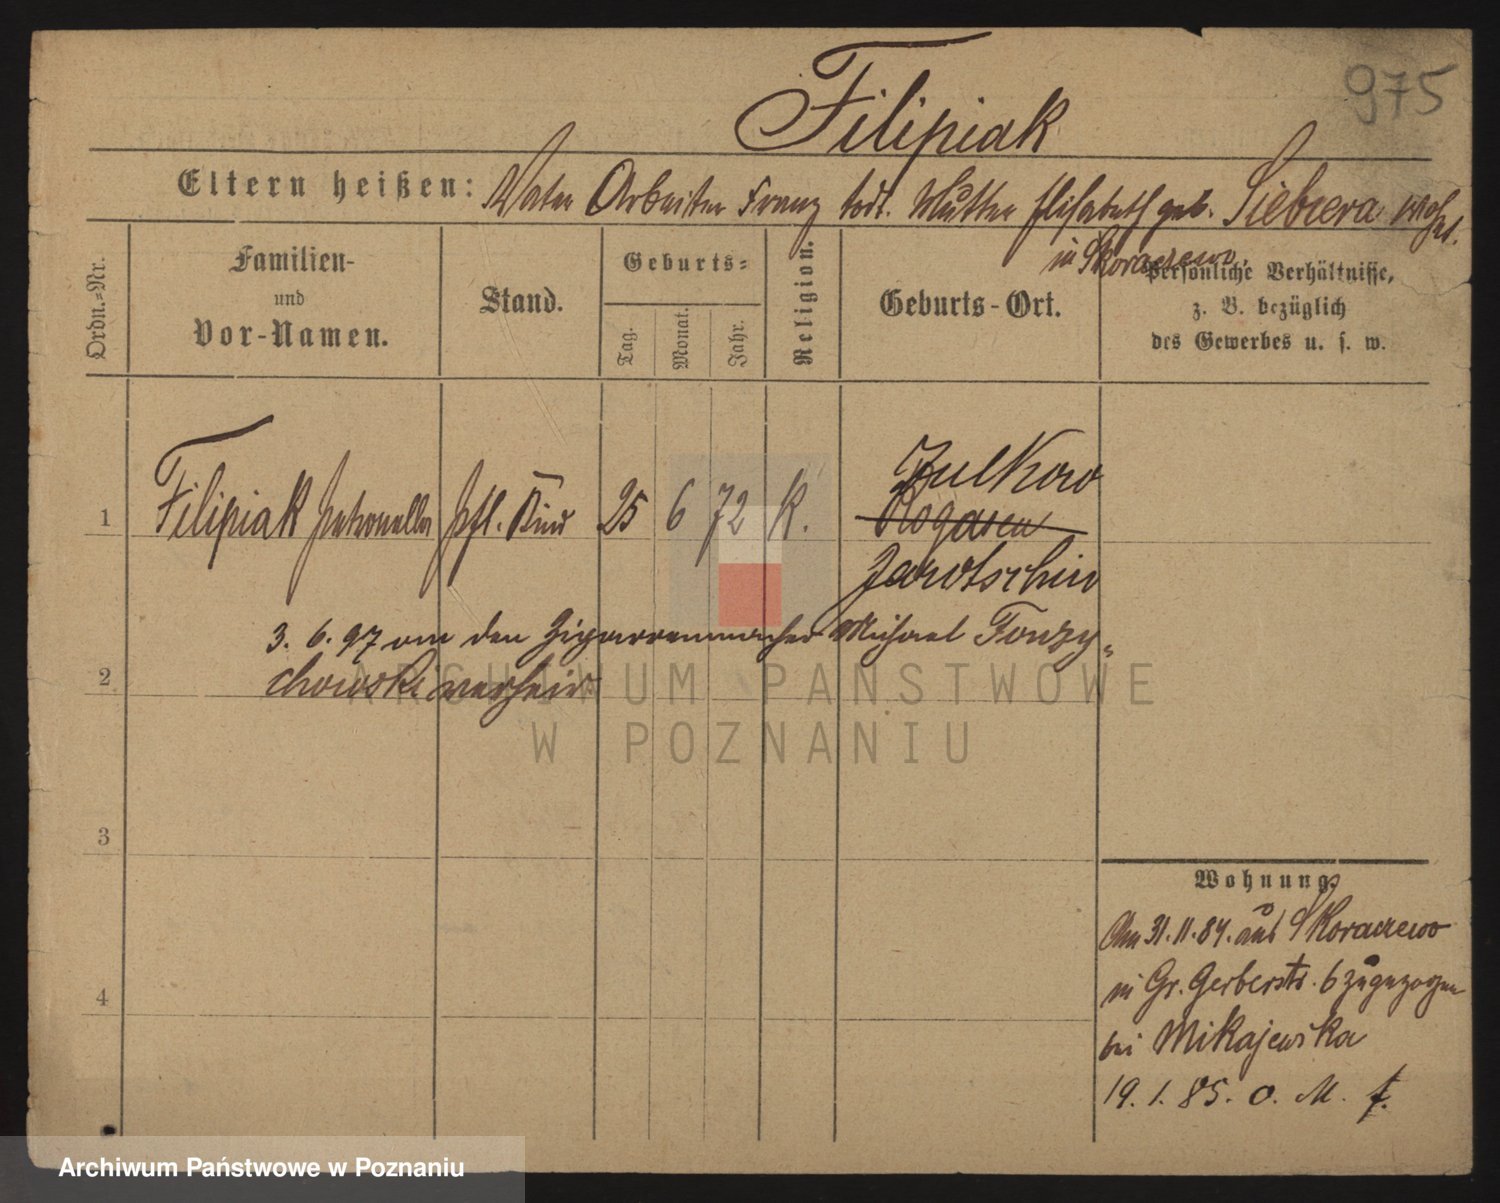 975
Filipiak
Eltern heißen: Vater Arbeiter Franz todt. Mutter Elisabeth geb. Siebrera wohnt.
in Skoraczewo.
Ordn.=Nr.
Familien-
und
Vor-Namen.
Stand.
Geburts=
Tag.
Monat.
Jahr.
Religion.
Geburts-Ort.
Persönliche Verhältnisse,
z. B. bezüglich
des Gewerbes u. s. w.
Zulkow
1 Filipiak Petronella Pfl. Kind 25 6 72 K. Rogasen
Jarotschin
3. 6. 97 an den Zigarrenmacher Michael
2 chowski verheir
3
4
Wohnung.
Am 31.11.84. aus Skoraczewo
in Gr. Gerberstr. 6 zugezogen
bei Mikajewska
19. 1. 85. o. M. f.
ARCHIWUM PAŃSTWOWE
W POZNANIU
Archiwum Państwowe w Poznaniu